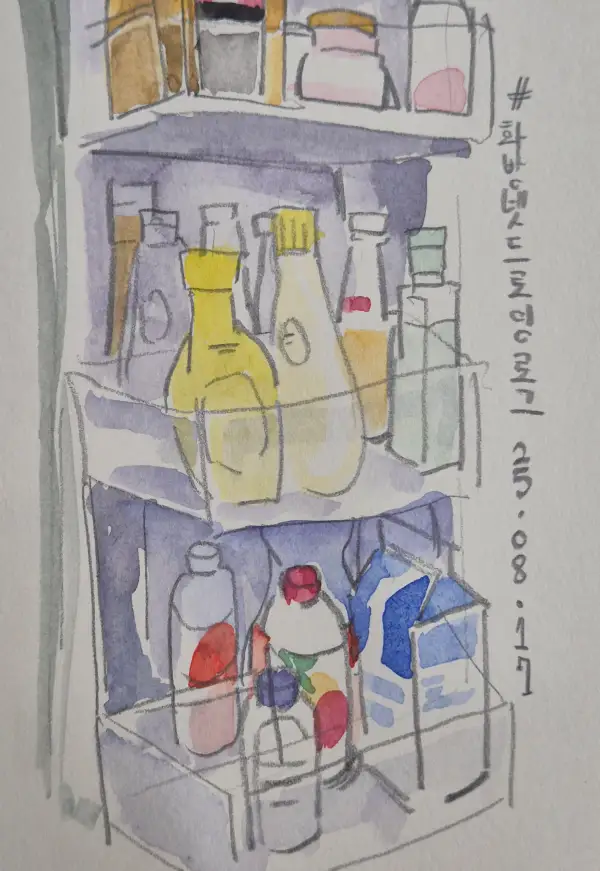 #화방넷드로잉로그 25.08.17